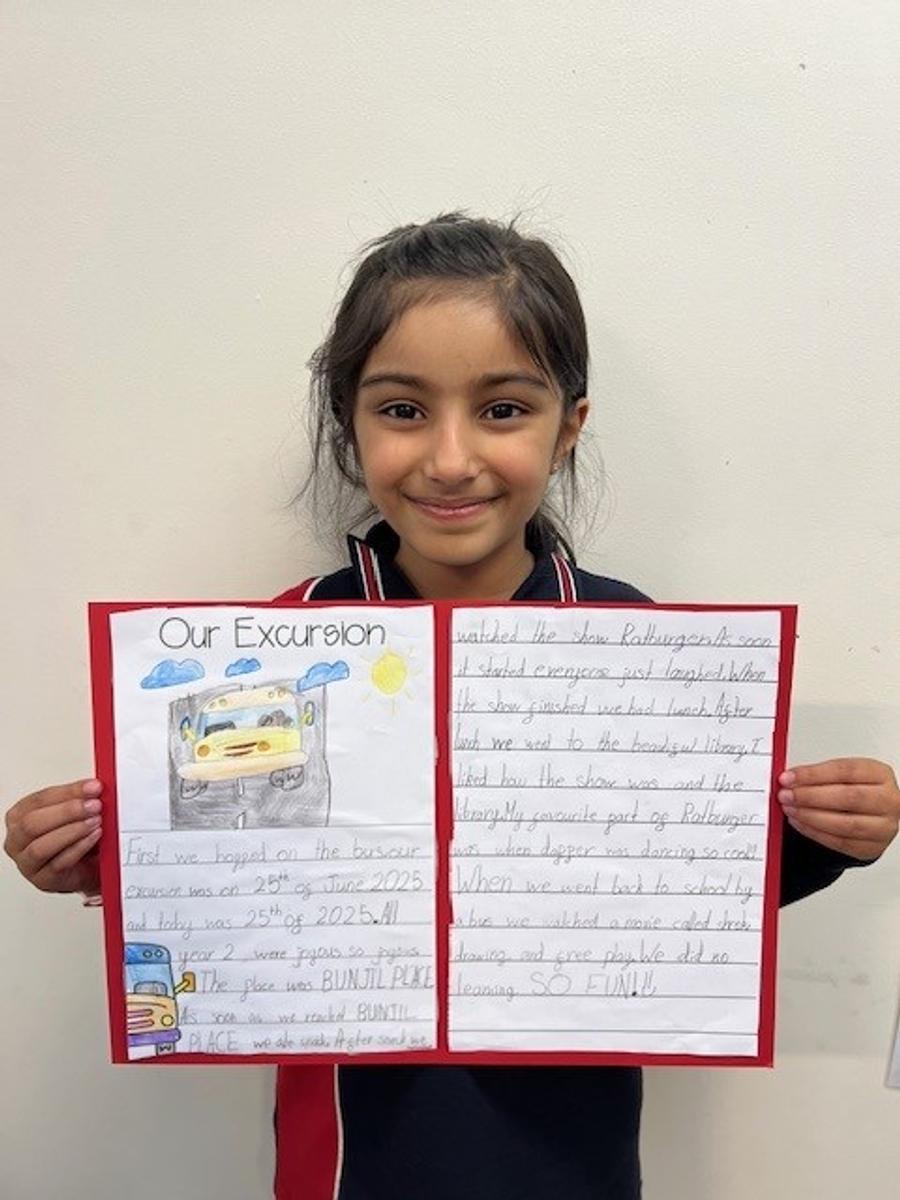 Our Excursion
First we hopped on the bus.our
excursion was on 25th of June 2025
and today was 25th of 2025.All
year 2 were joyous so joyous
The place was BUNJIL PLACE
As soon as we reached BUNJIL
PLACE we ate snack. After snack we
watched the show Ratburger.As soon
it started everyone just laughed.When
the show finished we had lunch.After
lunch we went to the beautiful library.I
liked how the show was and the
library.My favourite part of Ratburger
was when dapper was dancing so cool!!
When we went back to school by
a bus we watched a movie called shrek,
drawing and free play.We did no
learning. SO FUN!!!